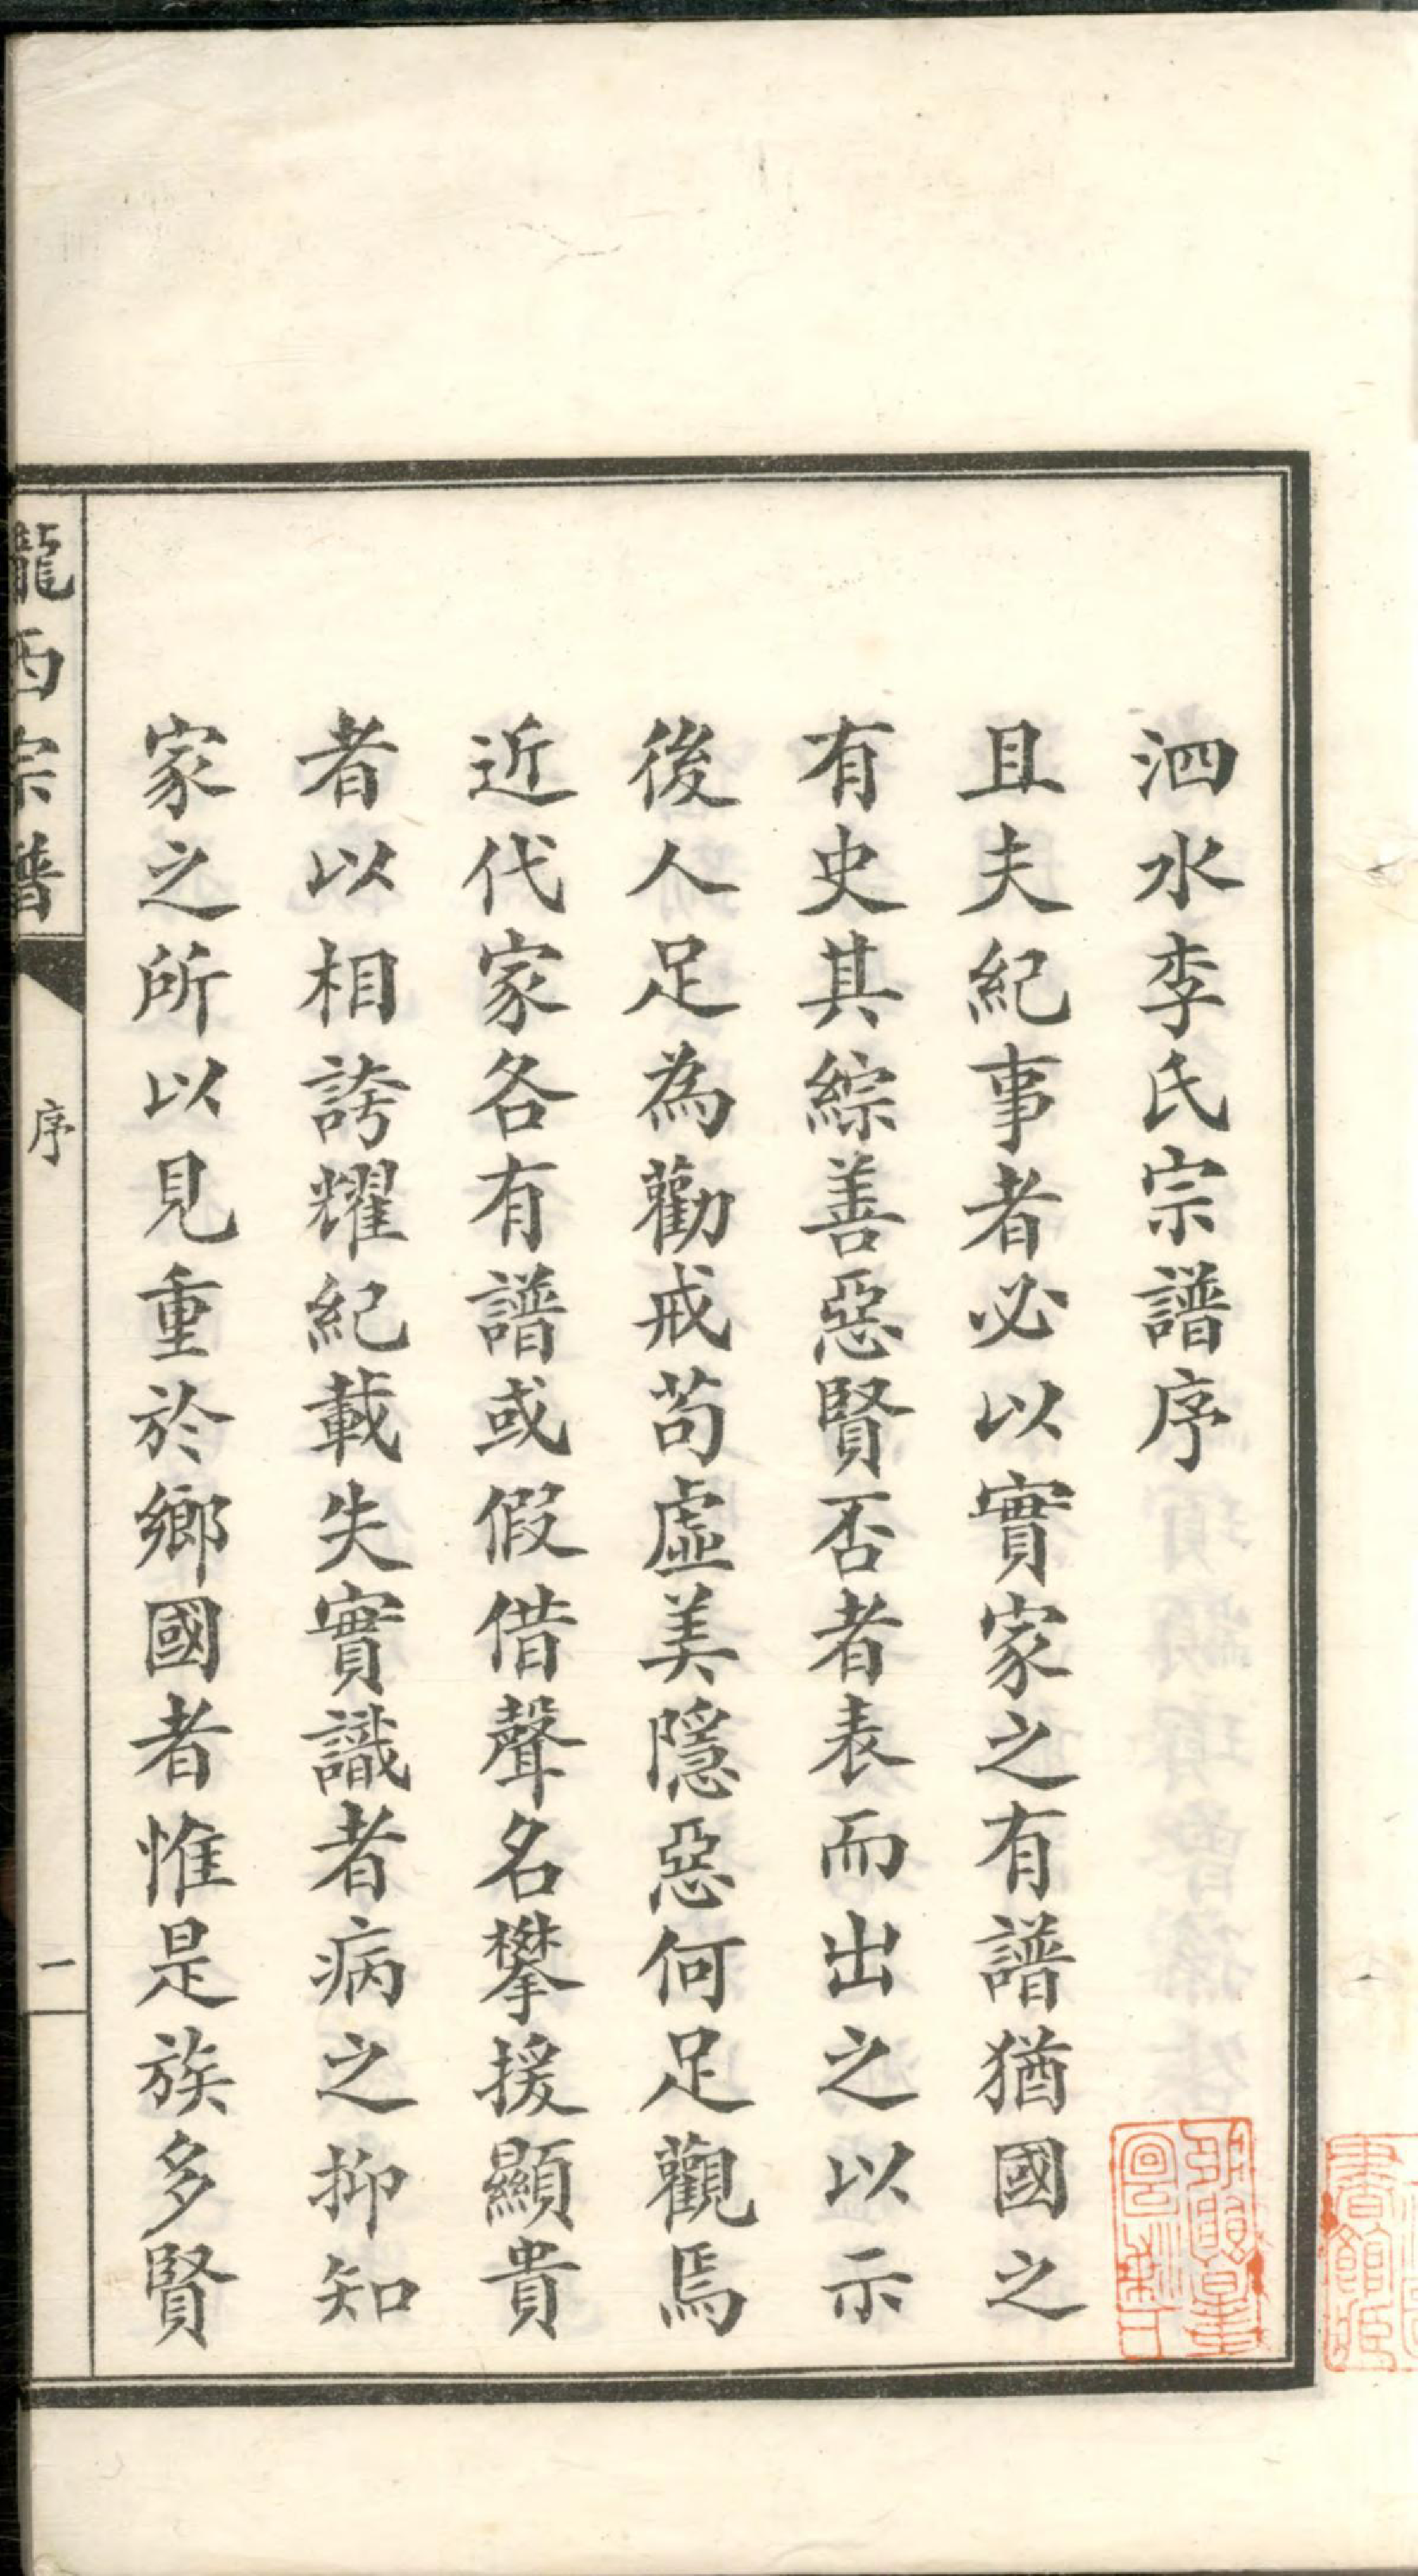 泗水李氏宗譜序
且夫紀事者必以實家之有譜猶國之
有史其綜善惡賢否者表而出之以示
後人足為勸戒苟虛美隱惡何足觀焉
近代家各有譜或假借聲名攀援顯貴
者以相誇耀紀載失實識者病之抑知
家之所以見重於鄉國者惟是族多賢
隴西宗譜
序
一